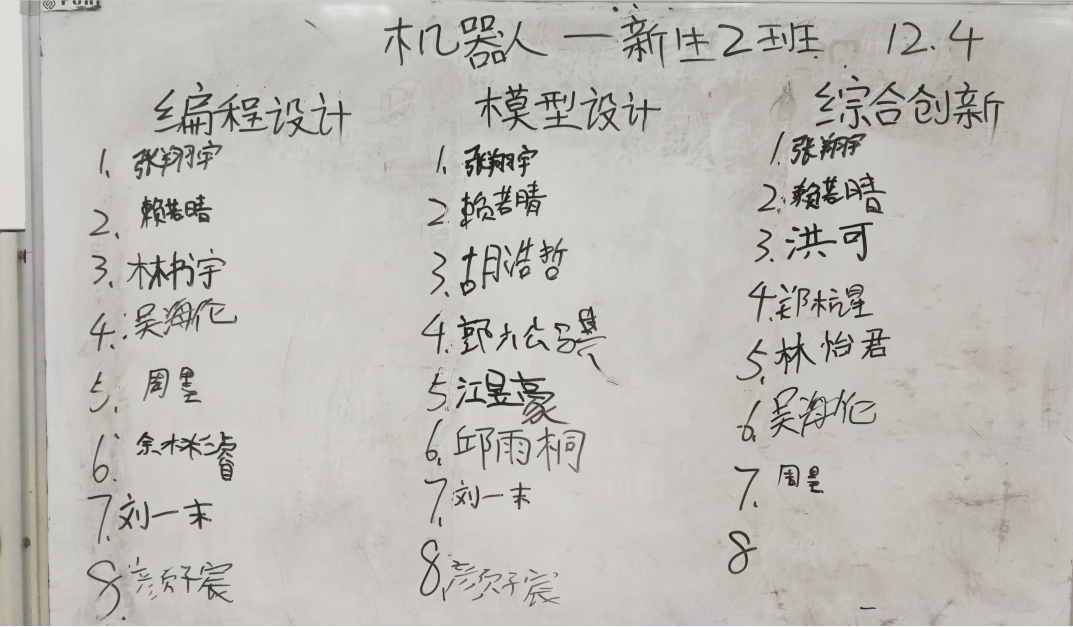 机器人一新生2班 12.4
编程设计
1. 张翔宇
2. 赖若晴
3. 林书宇
4. 吴海伦
5. 周昱
6. 余彬睿
7. 刘一末
8. 颜子宸
模型设计
1. 张翔宇
2. 赖若晴
3. 胡浩哲
4. 郭松骐
5. 江昱豪
6. 邱雨桐
7. 刘一末
8. 颜子宸
综合创新
1. 张翔宇
2. 赖若晴
3. 洪可
4. 郑杭星
5. 林怡君
6. 吴海伦
7. 周昱
8